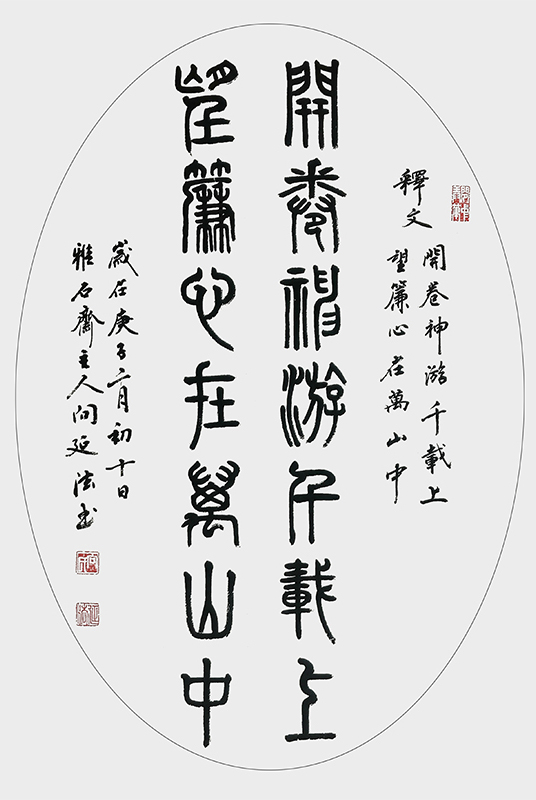 釋文
開卷神游千載上
望簾心在萬山中
開卷神游千載上
望簾心在萬山中
歲在庚子二月初十日
雅石齋主人延法书